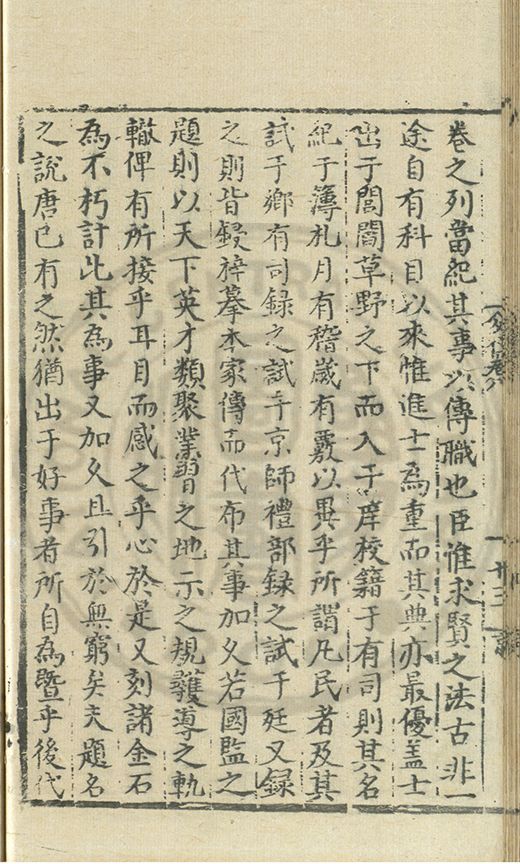 卷之列當紀其事以傳職也臣惟求賢之法古非一
途自有科目以來惟進士為重而其典亦最優盖士
出于閭閻草野之下而入于庠校籍于有司則其名
紀于簿札月有稽歲有覈以異乎所謂凡民者及其
試于鄉有司録之試于京師禮部録之試于廷又録
之則皆鋟梓摹本家傳而代布其事加久若國監之
題則以天下英才類聚業習之地示之規護導之軌
轍俾有所接乎耳目而感之乎心於是又刻諸金石
為不朽計此其為事又加久且引於無窮矣夫題名
之說唐已有之然猶出于好事者所自為暨乎後代
卷八
廿三